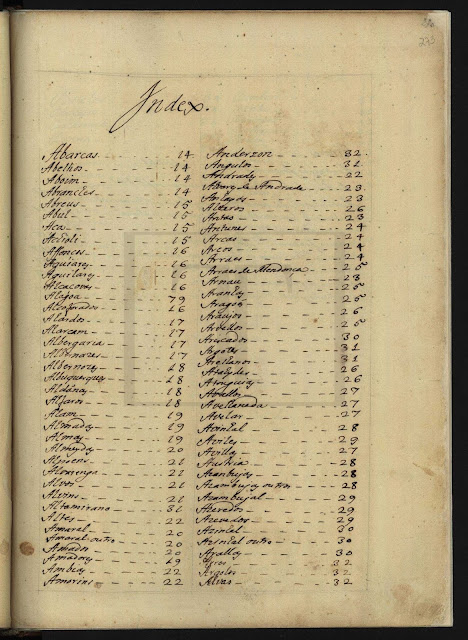 Index.
Abarcas 14
Abelhos 14
Aboim 14
Abranches 14
Abreus 15
Abul 15
Aca 15
Accioli 15
Affonces 16
Aguiares 16
Aguilares 16
Alcacovas 16
79
16
Alardos 17
Alarcam 17
Albergaria 17
Albernazes 17
Albernoz 18
Albuquerques 18
Aldanas 18
Aljaros 18
Alam 19
Almadas 19
Almas 19
Almeydas 20
21
Alvarenga 21
Alves 21
Alvins 21
Altamirano 31
Altes 22
Amaral 20
Amaral outro 20
Amados 20
Amadores 29
Ambias 22
Amorins 22
Anderzon 32
Angulos 31
Andrades 22
de Andrade 23
23
26
Antas 23
Antunes 24
Arcas 24
Arcos 24
Arraes 24
Arraes de Mendonça 25
Arnau 23
Aranhas 25
Aragos 25
Araujos 26
Arvellos 25
Arriscados 30
Argotes 31
Arellanos 31
Ataydes 26
Atouguias 26
27
Avellaneda 27
Avelar 27
Avintal 28
Aviles 29
Avilla 27
Austria 28
Azambujas 28
Azambujas outros 28
Azambujal 29
Azeredos 29
Azevedos 29
Azinhal 30
Azinhal outro 30
Ayallas 30
32
Argolos 32
Alvas 32